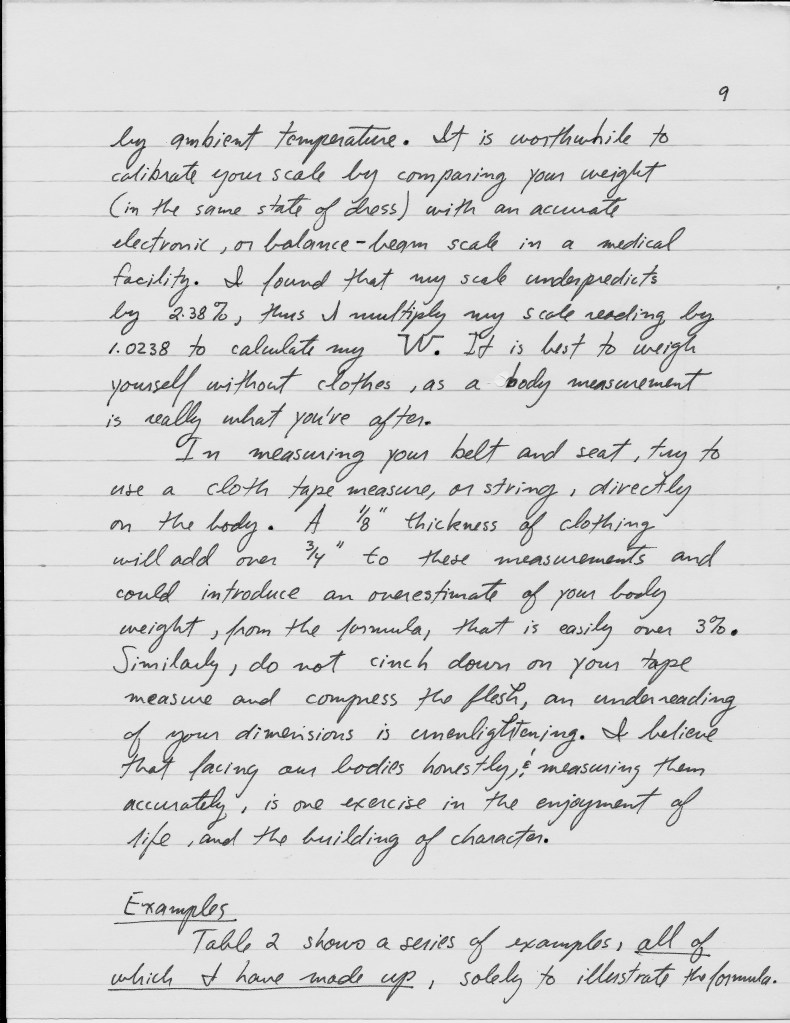 9
by ambient temperature. It is worthwhile to
calibrate your scale by comparing your weight
(in the same state of dress) with an accurate
electronic, or balance-beam scale in a medical
facility. I found that my scale underpredicts
by 2.38%, thus I multiply my scale reading by
1.0238 to calculate my W. It is best to weigh
yourself without clothes, as a body measurement
is really what you've after.
In measuring your belt and seat, try to
use a cloth tape measure, or string, directly
on the body. A 1/8" thickness of clothing
will add over 3/4" to these measurements and
could introduce an overestimate of your body
weight, from the formula, that is easily over 3%.
Similarly, do not cinch down on your tape
measure and compress the flesh, an underreading
of your dimensions is unenlightening. I believe
that facing our bodies honestly, & measuring them
accurately, is one exercise in the enjoyment of
life, and the building of character.
Examples
Table 2 shows a series of examples, all of
which I have made up, solely to illustrate the formula.